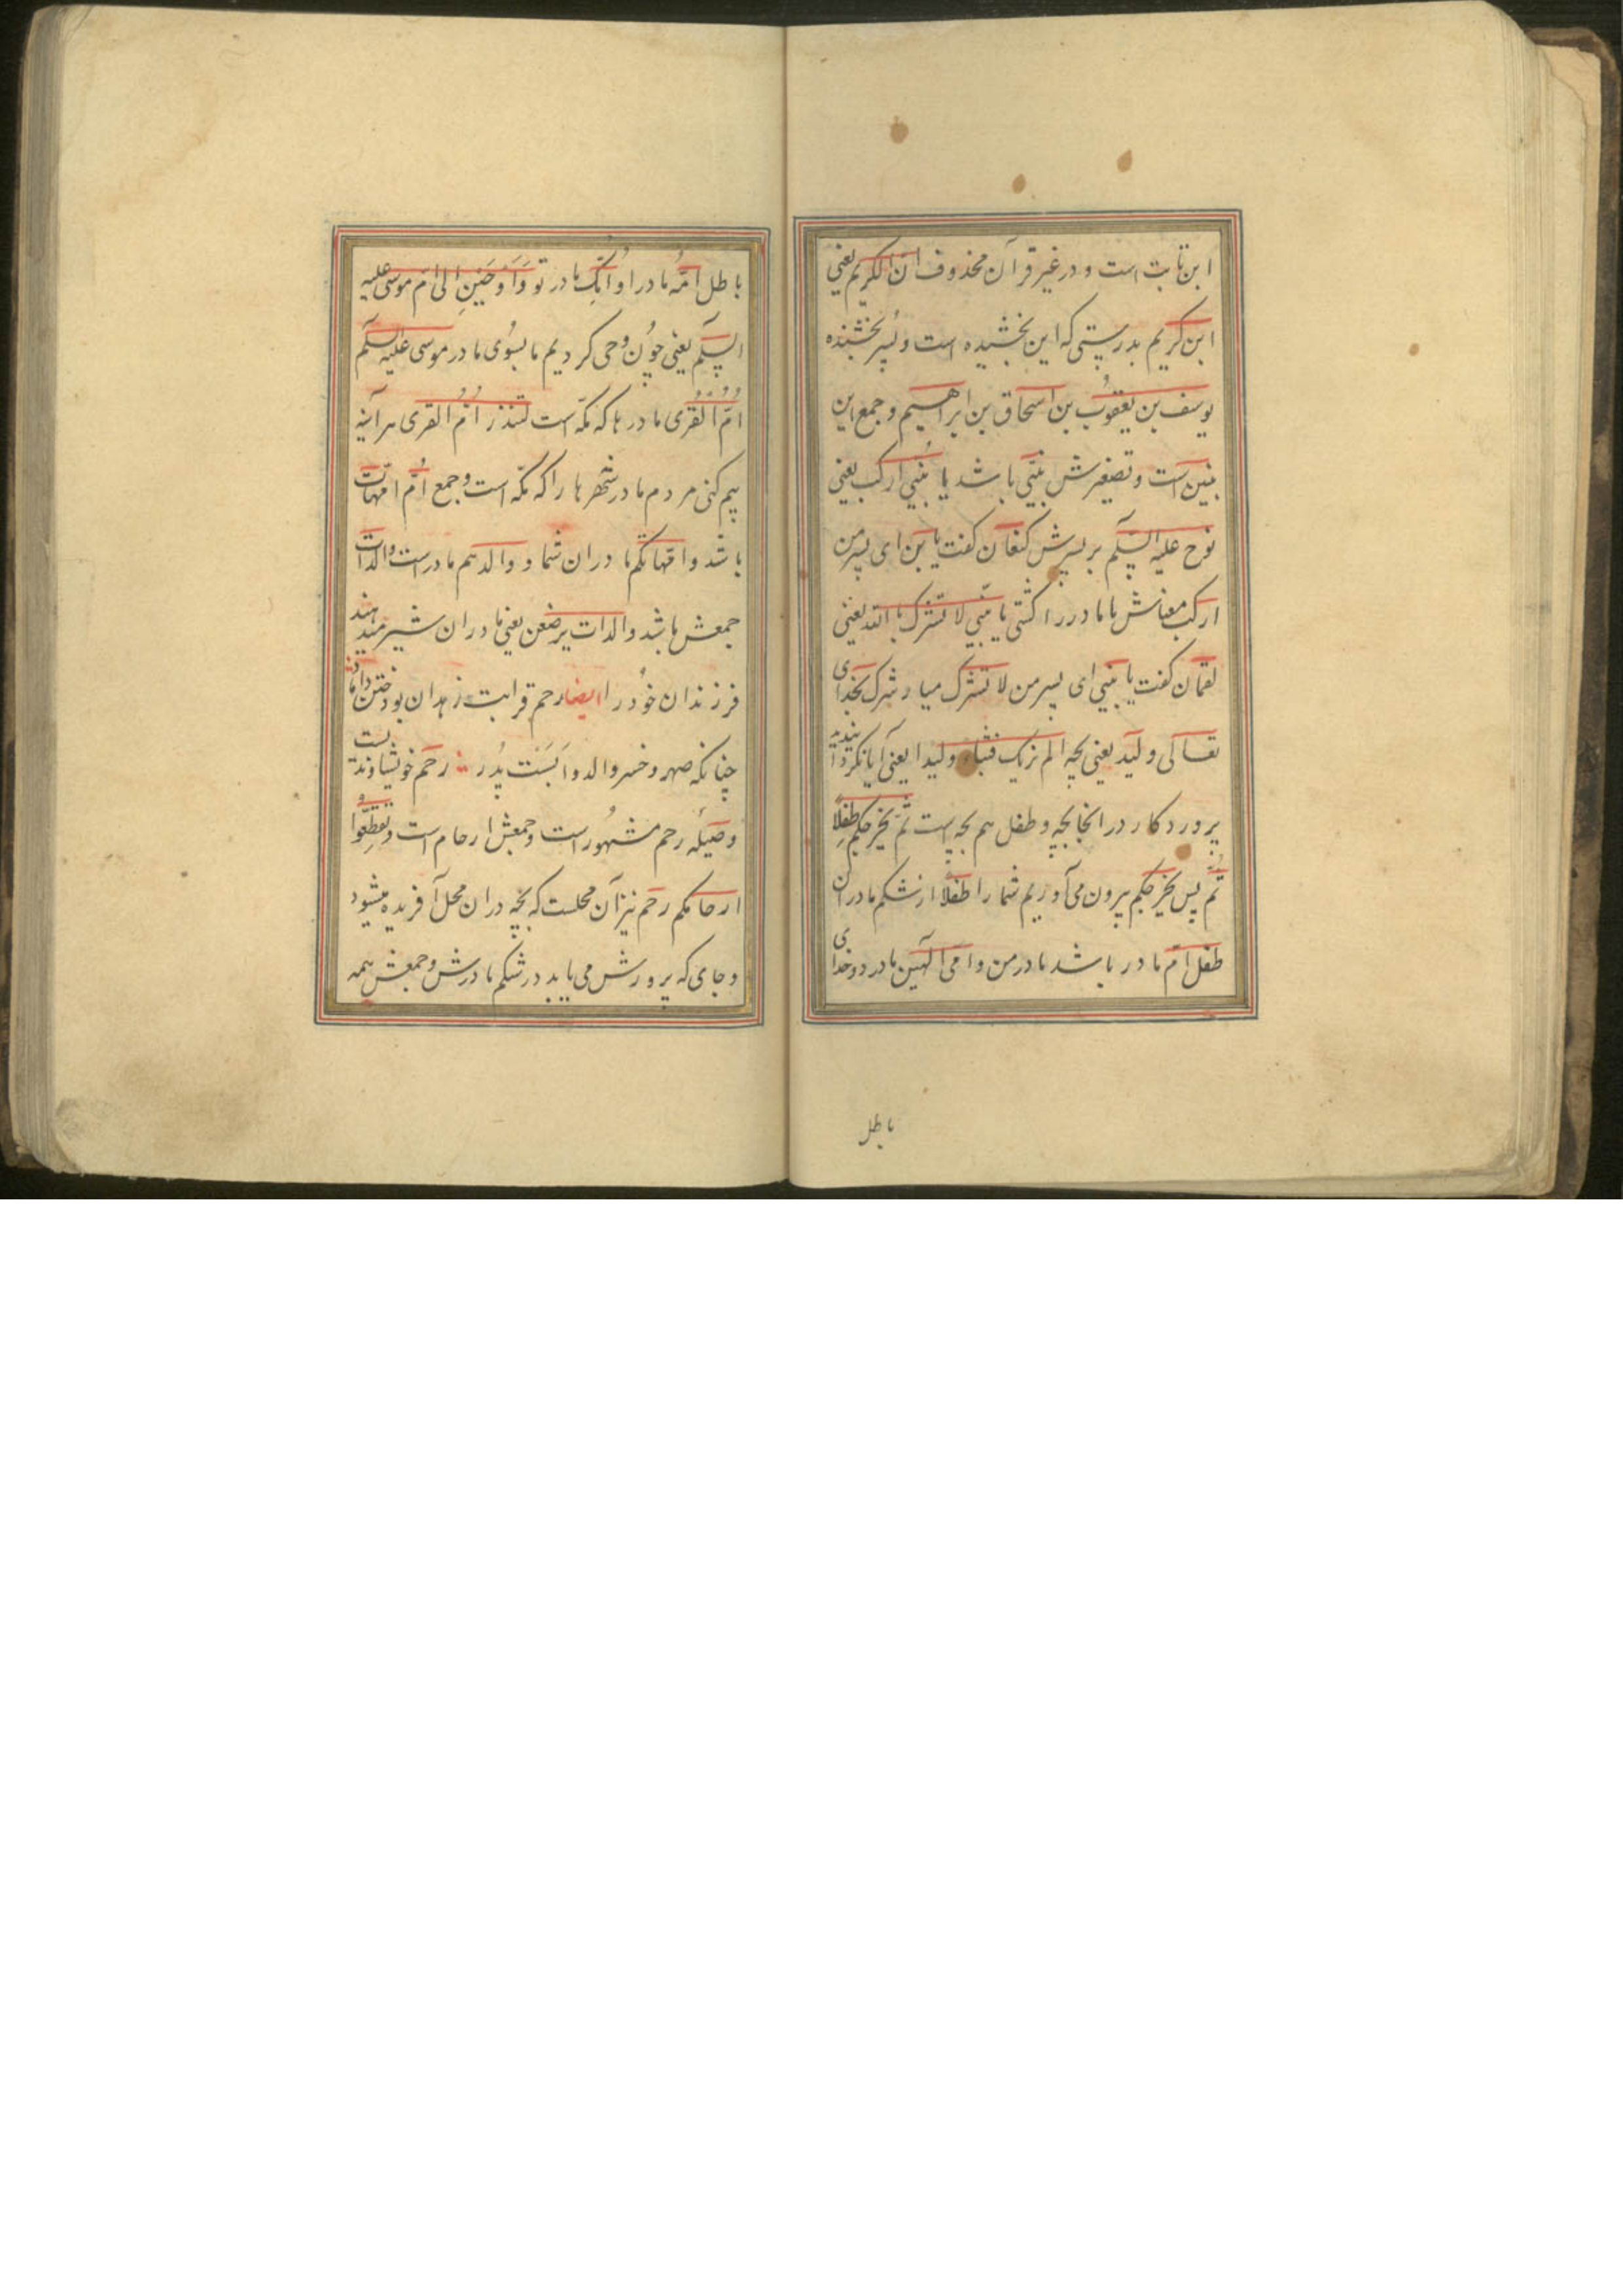 ابن ثابت است و در غیر قرآن محذوف ان الکریم یعنی
ابن کریم بدرستی که این بخشیده است و پسر بخشنده
یوسف بن یعقوب بن اسحاق بن ابراهیم و جمع این
بنین است و تصغیرش بنی باشد یا بنی ارکب یعنی
نوح علیه السلم بر پسرش کنعان کفت یا بنی ای پسر من
ارکب معناش با ما در را کشتی یا بنی لا تشرک بالله یعنی
لقمان کفت یا بنی ای پسر من لا تشرک میار شرک بخدای
تعالی ولید یعنی بچه الم نربک فینا ولیدا یعنی آیا نکردا
پروردکار در انجا بچه و طفل هم بچه است ثم یخرجکم طفلا
ثم پس یخرجکم بیرون می آوریم شما را طفلا از شکم مادران
طفل ام مادر باشد مادر من و امی الهین مادر دو خدای
باطل
باطل امه مادر او امک مادر تو و اوحین الی ام موسی علیه
السلم یعنی چون وحی کردیم ما بسوی مادر موسی علیه السلم
ام القری مادرها که مکه است لتنذر ام القری هر آینه
بیم کنی مردم مادر شهرها را که مکه است و جمع ام امهات
باشد و امهاتکم مادران شما و والده هم مادر است والدات
جمعش باشد والدات یرضعن یعنی مادران شیر میدهند
فرزندان خود را ایضا رحم قرابت زهدان بود ختن داماد
چنانکه صهر و خسر والد و ابست پدر رحم خویشاوندیست
وصیله رحم مشهور است و جمعش ارحام است و تقطعوا
ارحامکم رحم نیز آن محلست که بچه در ان محل آفریده میشود
و جای که پرورش می یابد در شکم مادرش و جمعش همه